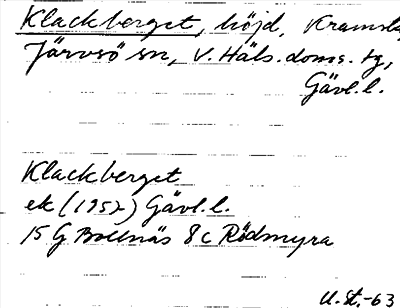 Klackberget, höjd, Kramsta
Järvsö sn, V. Häls. doms. tg,
Gävl.l.
Klackberget
ek (1957) Gävl.l.
15 G Bollnäs 8 c Rödmyra
U.St.-63